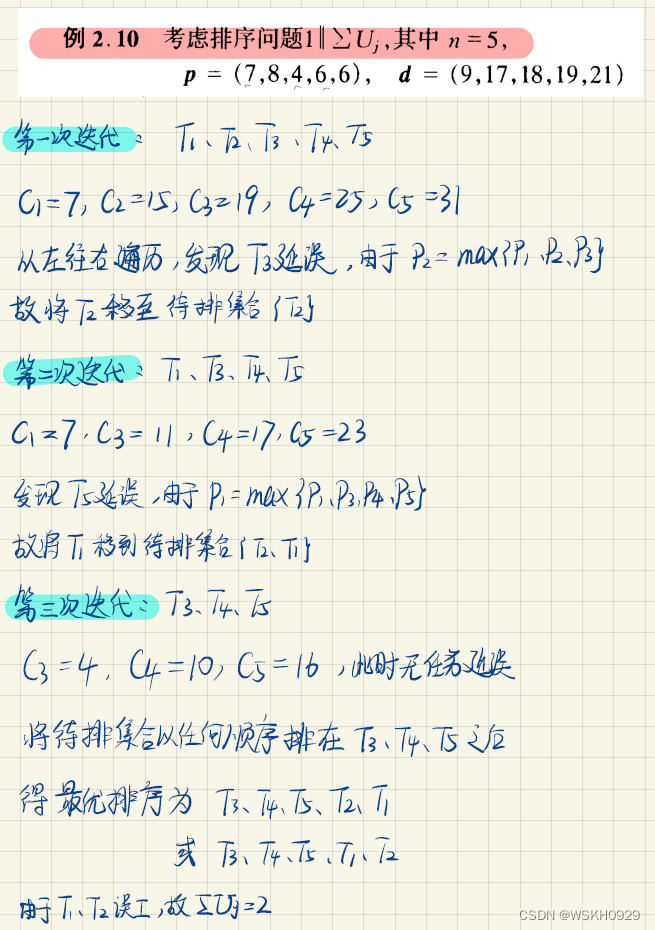 例 2.10 考虑排序问题1‖∑Uⱼ,其中 n=5,
p = (7,8,4,6,6), d = (9,17,18,19,21)
第一次迭代: T1、T2、T3、T4、T5
C1=7, C2=15, C3=19, C4=25, C5=31
从左往右遍历,发现 T3延误,由于 P2=max{P1、P2、P3}
故将 T2 移至 待排集合{T2}
第二次迭代: T1、T3、T4、T5
C1=7, C3=11, C4=17, C5=23
发现 T5延误,由于 P1=max{P1、P3、P4、P5}
故将 T1 移到待排集合{T2、T1}
第三次迭代: T3、T4、T5
C3=4, C4=10, C5=16,此时无任务延误
将待排集合以任何顺序排在 T3、T4、T5 之后
得最优排序为 T3、T4、T5、T2、T1
或 T3、T4、T5、T1、T2
由于 T1、T2 误工,故∑Uj=2
CSDN @WSKH0929